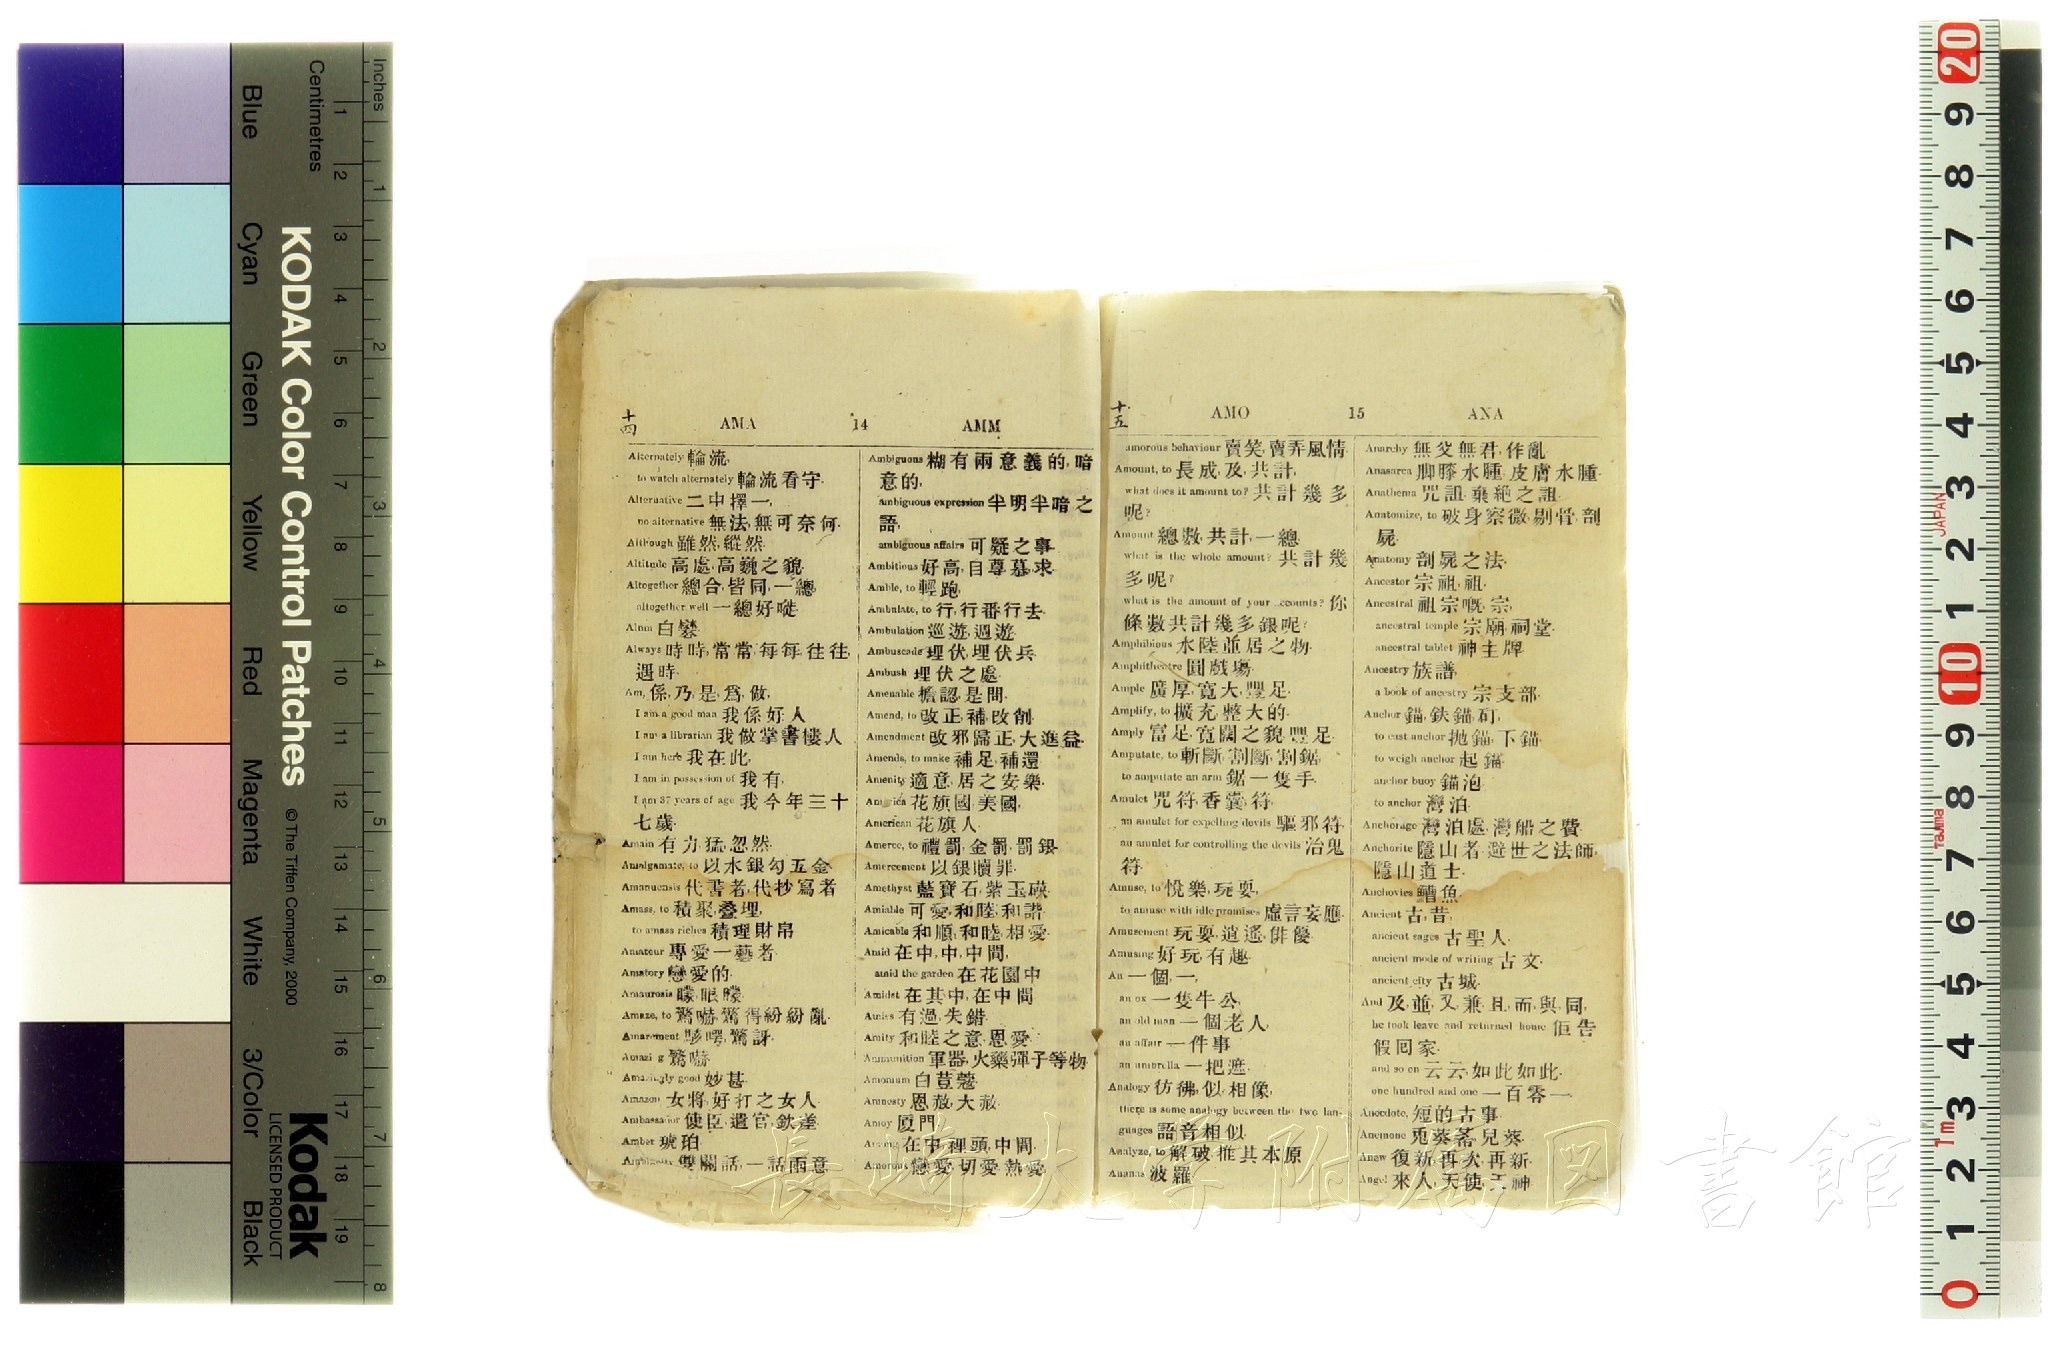 十四
AMA 14 AMM
Alternately 輪流,
to watch alternately 輪流看守.
Alternative 二中擇一,
no alternative 無法,無可奈何.
Although 雖然,縱然.
Altitude 高處,高巍之貌.
Altogether 總合,皆同,一總,
altogether well 一總好嘥.
Alum 白礬.
Always 時時,常常,每每,往往,
遇時.
Am, 係,乃,是,爲,做,
I am a good man 我係好人
I am a librarian 我做掌書樓人
I am here 我在此,
I am in possession of 我有,
I am 37 years of age 我今年三十
七歲.
Amain 有力,猛,忽然.
Amalgamate, to 以水銀勾五金.
Amanuensis 代書者,代抄寫者
Amass, to 積聚,叠埋,
to amass riches 積埋財帛
Amateur 專愛一藝者.
Amatory 戀愛的.
Amaurosis 矇,眼矇.
Amaze, to 驚嚇,驚得紛紛亂.
Amazement 驚訝.
Amazing 驚嚇.
Amazingly good 妙甚.
Amazon 女將,好打之女人.
Ambassador 使臣,遣官,欽差.
Amber 琥珀.
雙關話,一話兩意
Ambiguous 糊有兩意義的,暗
意的,
ambiguous expression 半明半暗之
語,
ambiguous affairs 可疑之事.
Ambitious 好高,自尊,慕,求.
Amble, to 輕跑,
Ambulate, to 行,行番行去.
Ambulation 巡遊,週遊.
Ambuscade 埋伏,埋伏兵.
Ambush 埋伏之處.
Amenable 擔認,是問.
Amend, to 改正,補,改削.
Amendment 改邪歸正,大進益.
Amends, to make 補足,補還.
Amenity 適意,居之安樂.
America 花旗國,美國,
American 花旗人.
Amerce, to 禮罰,金罰,罰銀.
Amercement 以銀贖罪.
Amethyst 藍寶石,紫玉磺.
Amiable 可愛,和睦,和諧.
Amicable 和順,和睦,相愛.
Amid 在中,中,中間,
amid the garden 在花園中
Amidst 在其中,在中間
Amiss 有過,失錯.
Amity 和睦之意,恩愛.
Ammunition 軍器,火藥彈子等物
Amomum 白荳蔻.
Amnesty 恩赦,大赦.
Amoy 廈門.
Among 在中,裡頭,中間.
Amorous 戀愛,切愛,熱愛,
十五
AMO 15 ANA
amorous behaviour 賣笑,賣弄風情.
Amount, to 長成,及,共計,
what does it amount to? 共計幾多
呢?
Amount 總數,共計,一總,
what is the whole amount? 共計幾
多呢?
what is the amount of your accounts? 你
條數共計幾多銀呢?
Amphibious 水陸並居之物.
Amphitheatre 圓戲場.
Ample 廣厚,寬大,豐足.
Amplify, to 擴充,整大的.
Amply 富足,寬闊之貌,豐足.
Amputate, to 斬斷,割斷,割鋸,
to amputate an arm 鋸一隻手.
Amulet 咒符,香囊,符,
an amulet for expelling devils 驅邪符.
an amulet for controlling the devils 治鬼
符.
Amuse, to 悅樂,玩耍,
to amuse with idle promises 虛言妄應.
Amusement 玩耍,逍遙,俳優.
Amusing 好玩,有趣.
An 一個,一,
an ox 一隻牛公,
an old man 一個老人,
an affair 一件事
an umbrella 一把遮.
Analogy 彷彿,似,相像,
there is some analogy between the two lan-
guages 語音相似.
Analyze, to 解破,推其本原
Ananas 波羅.
Anarchy 無父無君,作亂
Anasarca 脚膝水腫,皮膚水腫.
Anathema 咒詛,棄絕之詛.
Anatomize, to 破身察微,剔骨,剖
屍.
Anatomy 剖屍之法.
Ancestor 宗祖,祖.
Ancestral 祖宗嘅,宗,
ancestral temple 宗廟,祠堂.
ancestral tablet 神主牌.
Ancestry 族譜,
a book of ancestry 宗支部.
Anchor 錨,鈇錨,矴,
to cast anchor 拋錨,下錨.
to weigh anchor 起錨.
anchor buoy 錨泡.
to anchor 灣泊.
Anchorage 灣泊處,灣船之費.
Anchorite 隱山者,避世之法師,
隱山道士.
Anchovies 鰽魚.
Ancient 古,昔,
ancient sages 古聖人.
ancient mode of writing 古文.
ancient city 古城.
And 及,並,又,兼,且,而,與,同,
he took leave and returned home 佢告
假囘家.
and so on 云云,如此如此.
one hundred and one 一百零一.
Anecdote, 短的古事.
Anemone 兎葵,菟兒葵.
Anew 復新,再次,再新.
Angel 來人,天使,王神
長崎大学附属図書館
Inches
Centimetres
KODAK Color Control Patches
© The Tiffen Company, 2000
Kodak
LICENSED PRODUCT
Blue Cyan Green Yellow Red Magenta White 3/Color Black
1 2 3 4 5 6 7 8 9 10 11 12 13 14 15 16 17 18 19
1 2 3 4 5 6 7 8
20 9 8 7 6 5 4 3 2 1 10 9 8 7 6 5 4 3 2 1 0
JAPAN
Tajima
1m